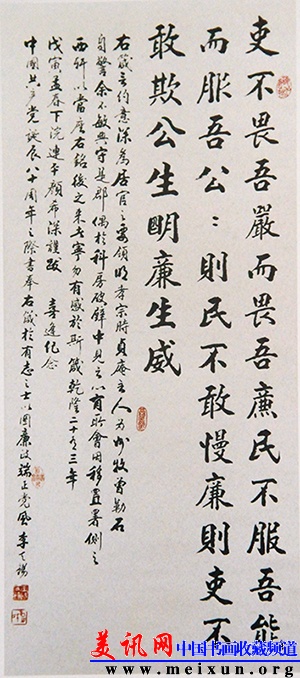 吏不畏吾嚴而畏吾廉民不服吾能
而服吾公：則民不敢慢廉則吏不
敢欺公生明廉生威
右箴言約意深為居官之要領明孝宗時貞庵主人為州牧曾勒石
自警余不敏典守是郡偶於科房破壁中見之以有吟會因移置署側之
西軒以當座右銘後之來者寧勿有感於斯箴乾隆二十又三年
戊寅孟春下浣連平顏希深謹跋 喜逢紀念
中國共產黨誕辰八十周年之際書奉右箴於有志之士以圖廉政端正黨風 李
美讯网
中国书画收藏频道
www.meixun.org